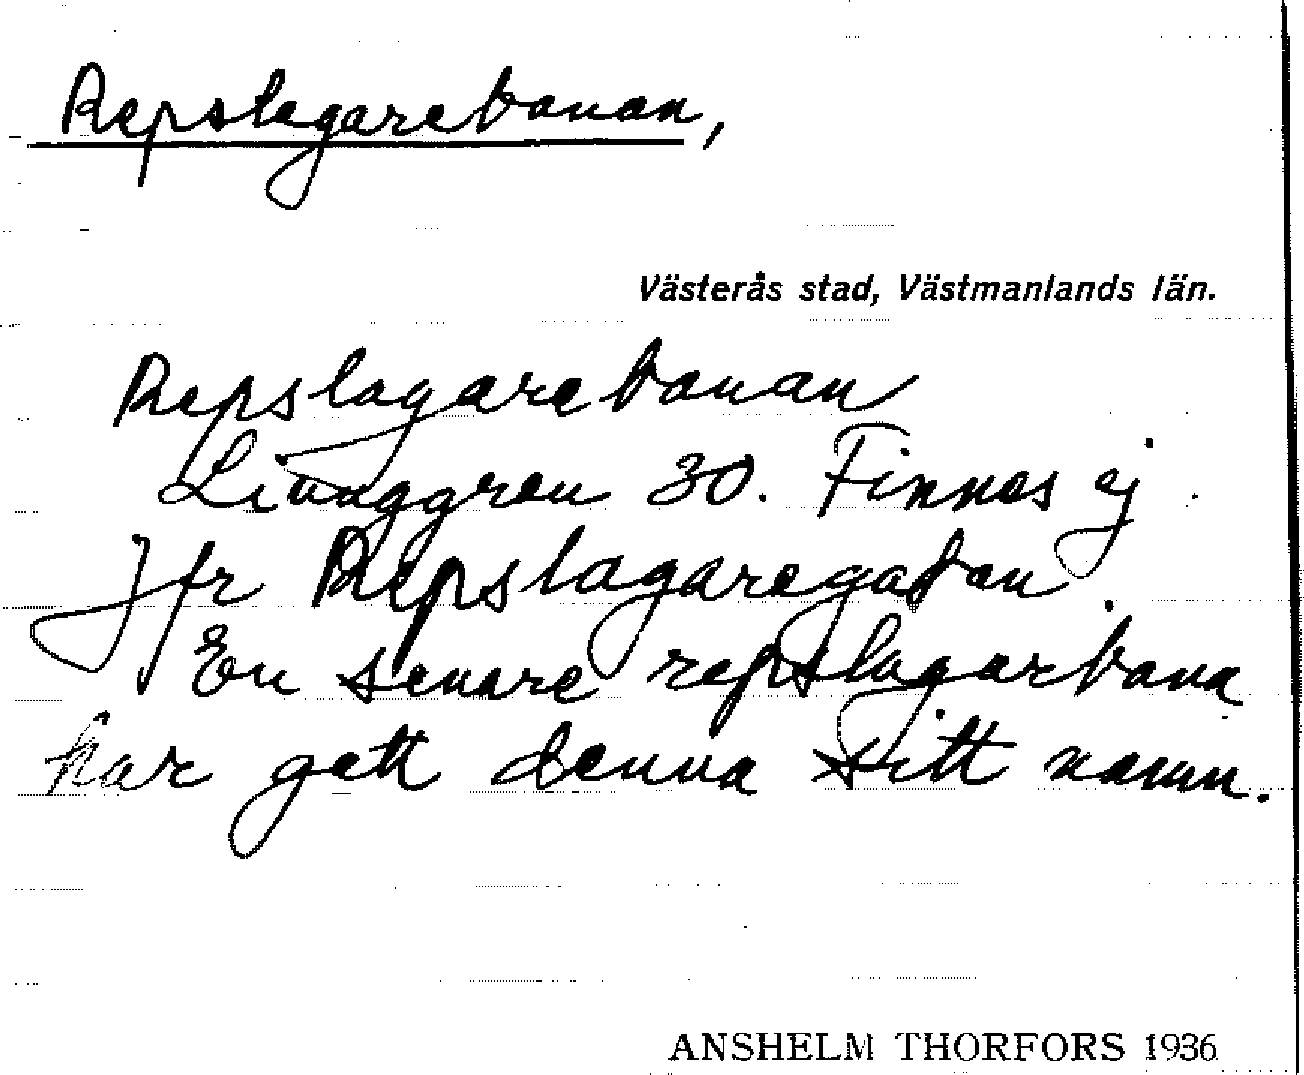 Repslagarebanan,
Västerås stad, Västmanlands län.
Repslagarebanan
Ljunggren 30. Finnes ej
Jfr Repslagaregatan.
En senare repslagarbana
har gett denna sitt namn.
ANSHELM THORFORS 1936